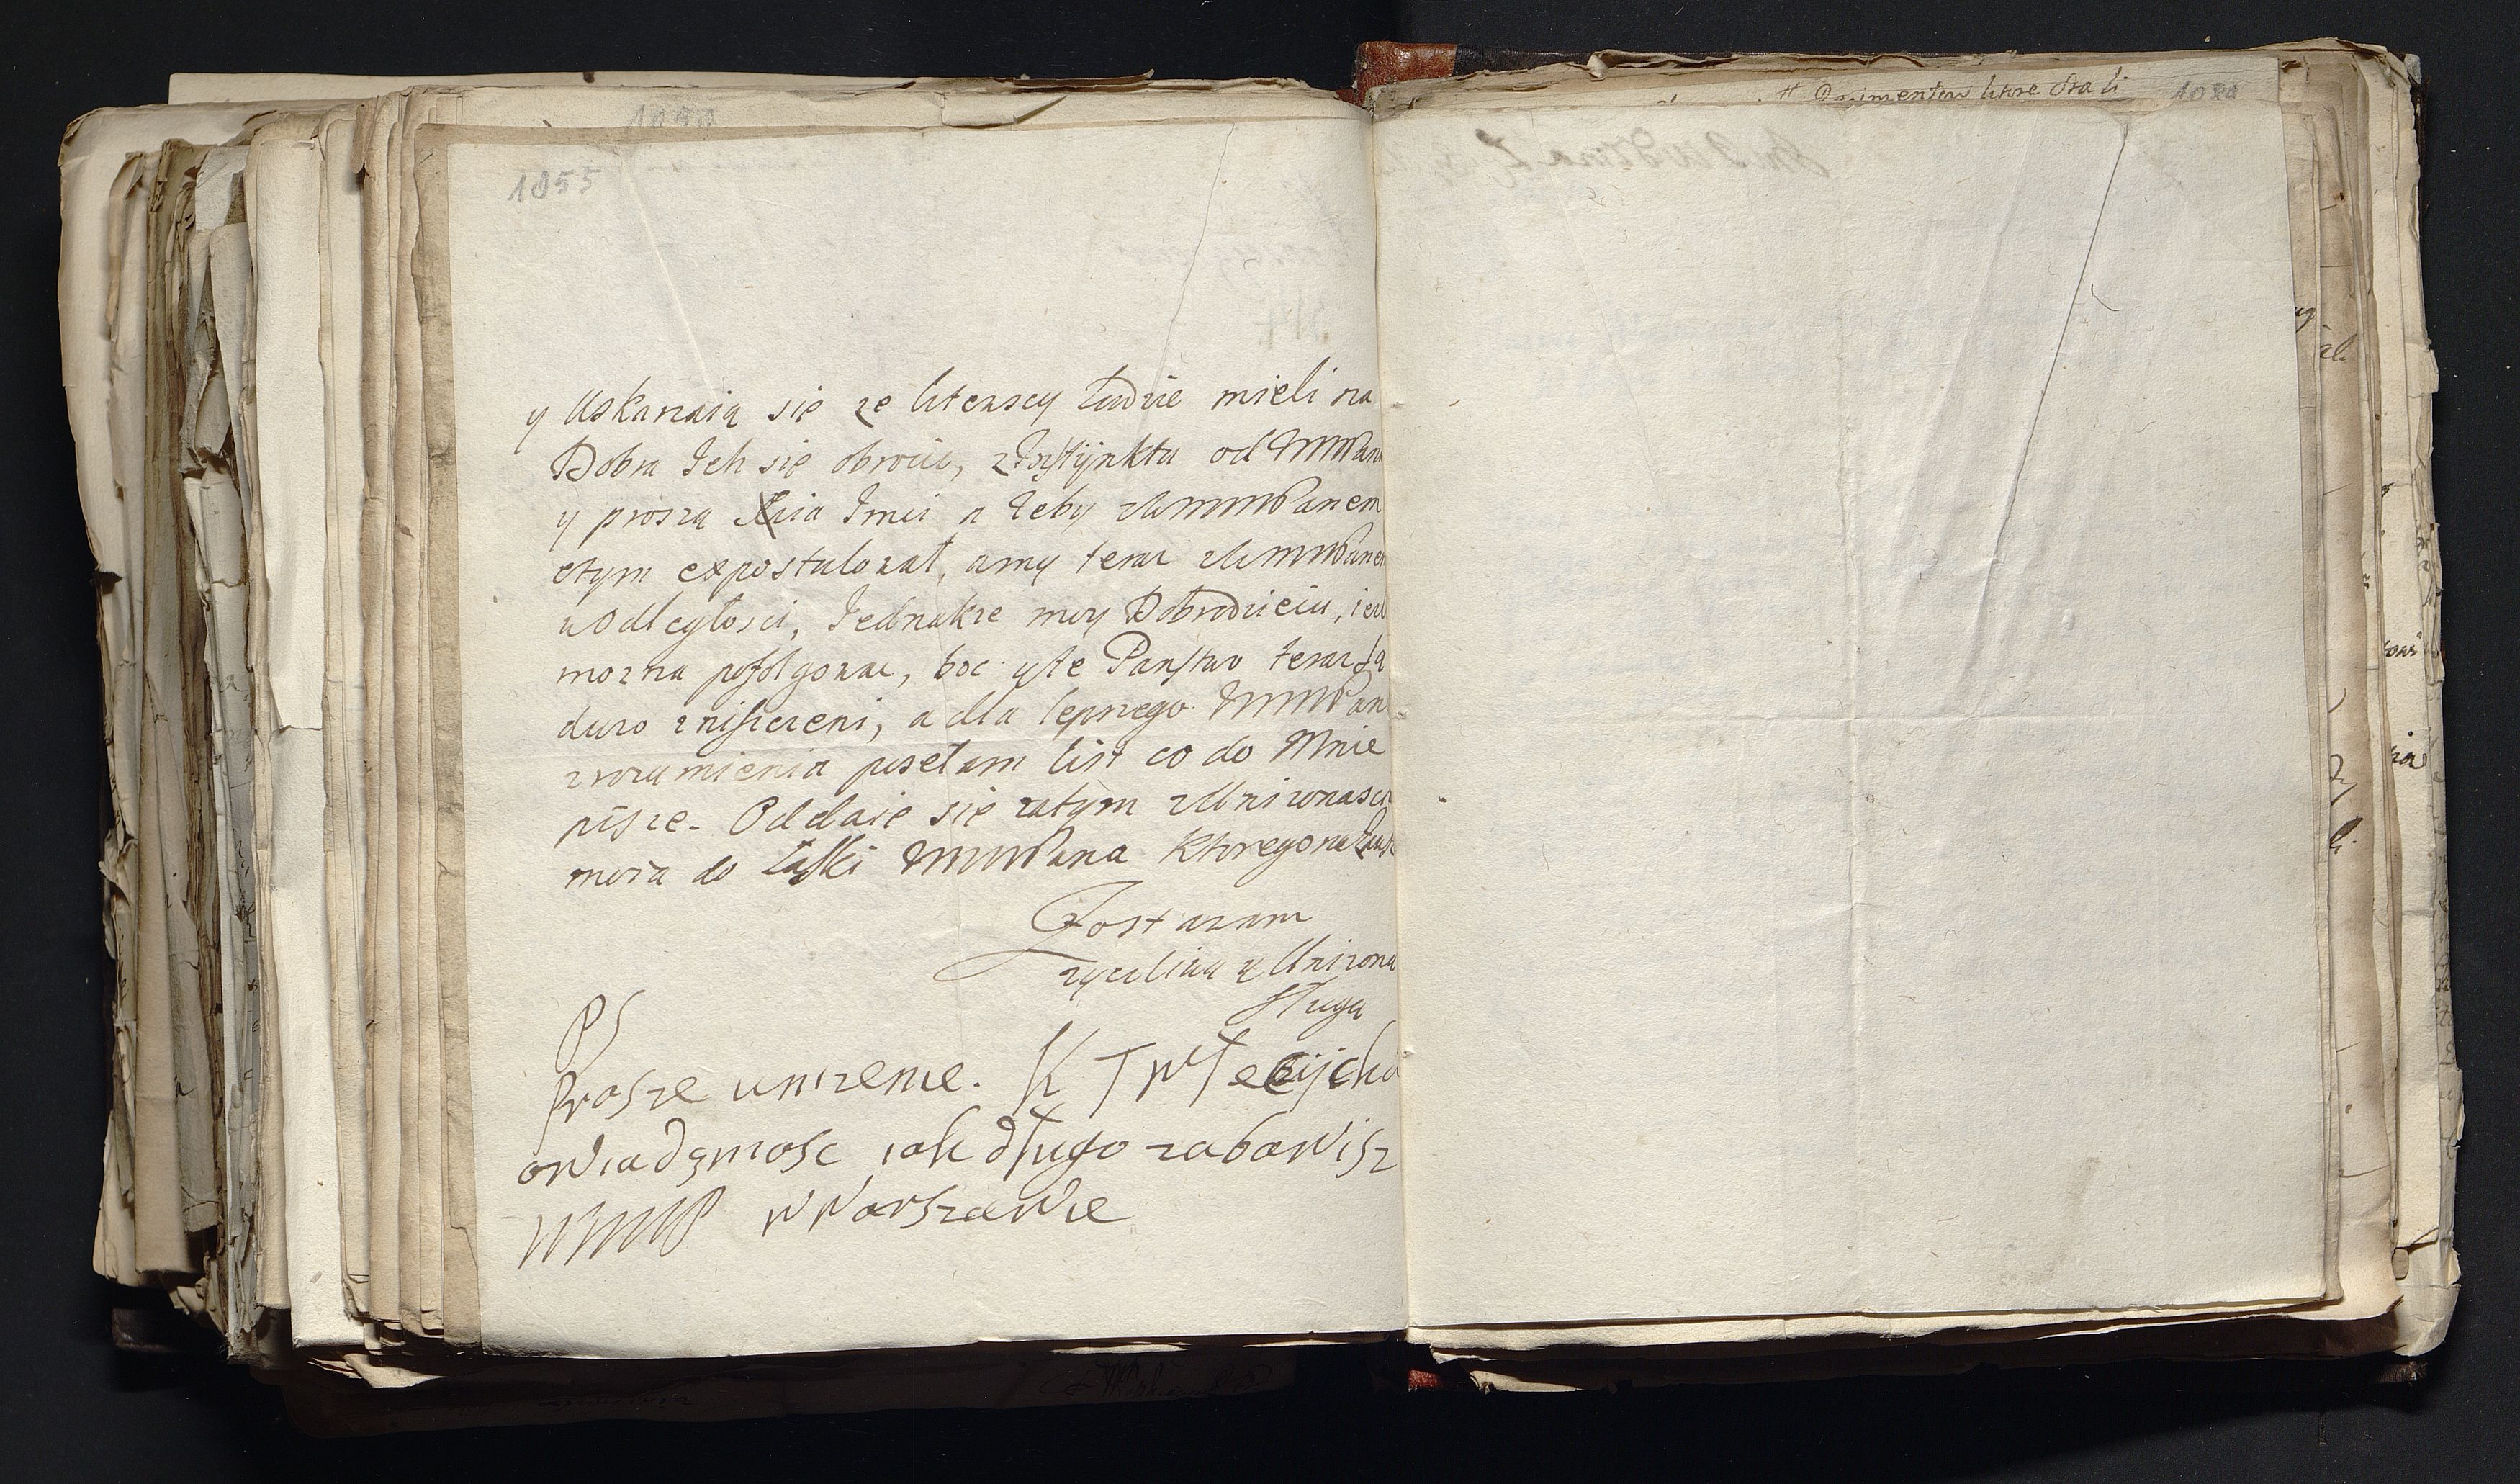 1055
y Uskarzaią się ze litewscy ludzie mieli na
Dobra Ich się obrocic, z Instijnktu od WMMPana
y prosza Xcia Imci a zeby z WMMPanem
otym expostulował, a my teraz z WMMPanem
w Odległosci, Iednakze moy Dobrodzieiu, iezli
mozna pofolgowac, boc y te Panstwo teraz są
duzo zniszczeni, a dla lepszego WMMPana
zrozumienia posełam list co do Mnie
pisze. Oddaie się zatym z Unizonascią
moia do Łaski WMMPana ktorego na zawsze
Zostawam
zyczliwą y Unizoną
sługą
PS
Prosze unizenie. K T
owiadomosc iak długo zabawisz
WMMP w Warszawie
1080
które stali
1084